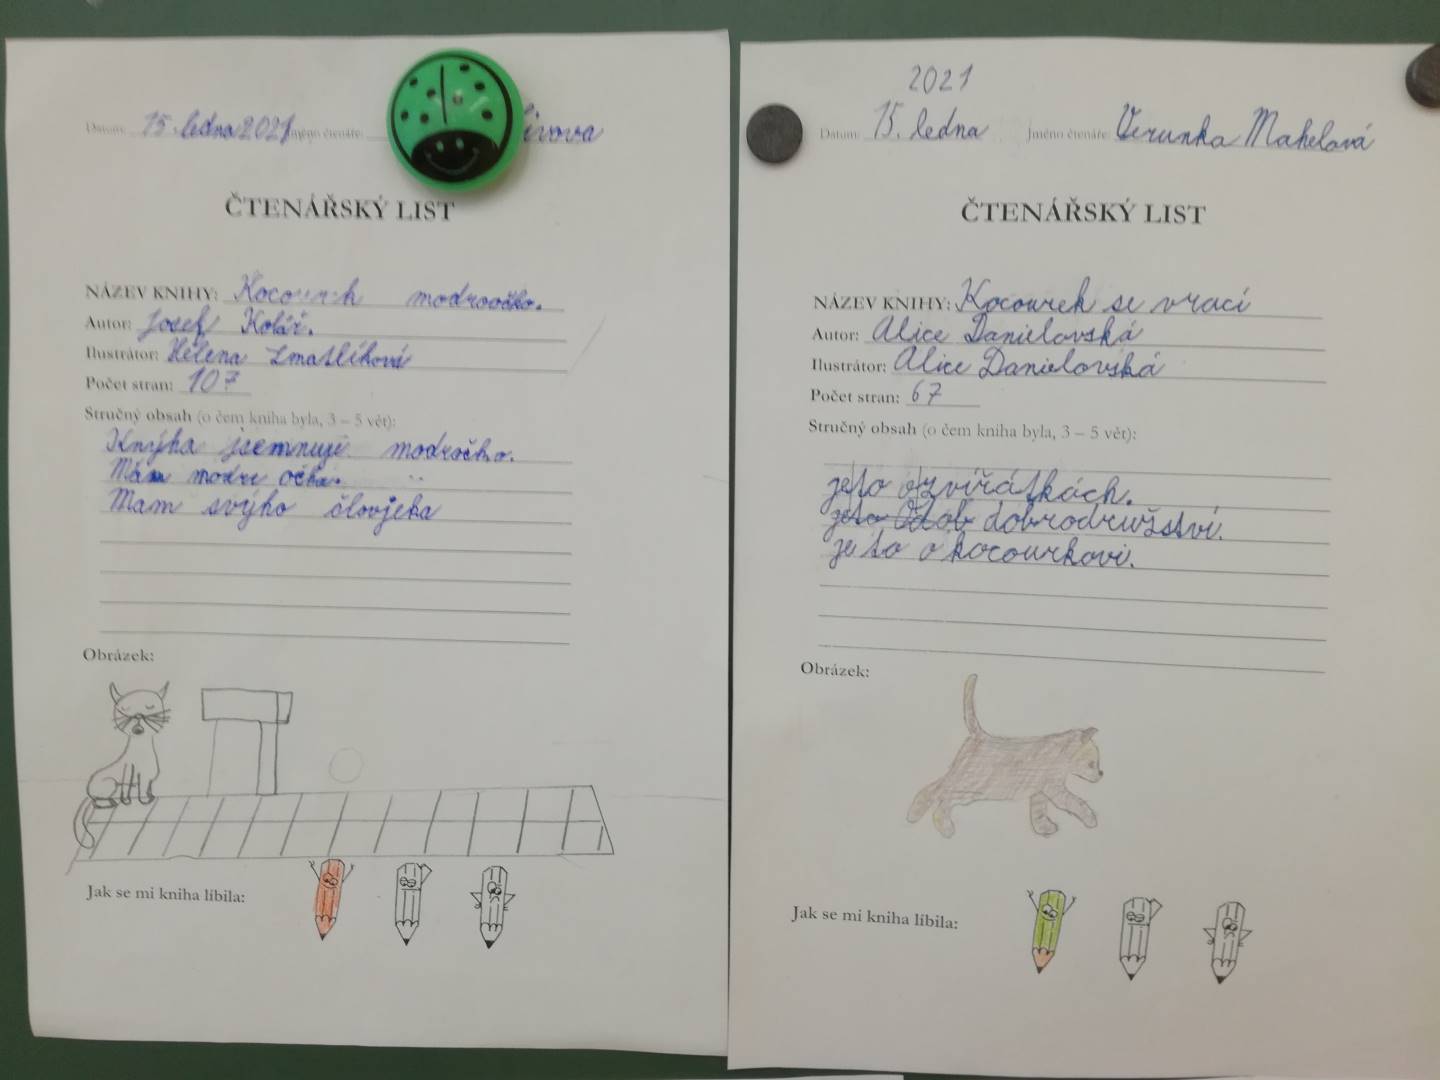 Datum: 15. ledna 2021 Jméno čtenáře:
ČTENÁŘSKÝ LIST
NÁZEV KNIHY: Kocourek modroočko.
Autor: Josef Kolář.
Ilustrátor: Helena Zmatlíková
Počet stran: 107
Stručný obsah (o čem kniha byla, 3 – 5 vět):
Knýha jsemnuje modročko.
Mám modre očka.
Mam svýho člověka
Obrázek:
Jak se mi kniha líbila:
2021
Datum: 15. ledna Jméno čtenáře: Verunka Mahelová
ČTENÁŘSKÝ LIST
NÁZEV KNIHY: Kocourek se vrací
Autor: Alice Danielovská
Ilustrátor: Alice Danielovská
Počet stran: 67
Stručný obsah (o čem kniha byla, 3 – 5 vět):
je to o zvířátkách.
dobrodružství.
je to o kocourkovi.
Obrázek:
Jak se mi kniha líbila: